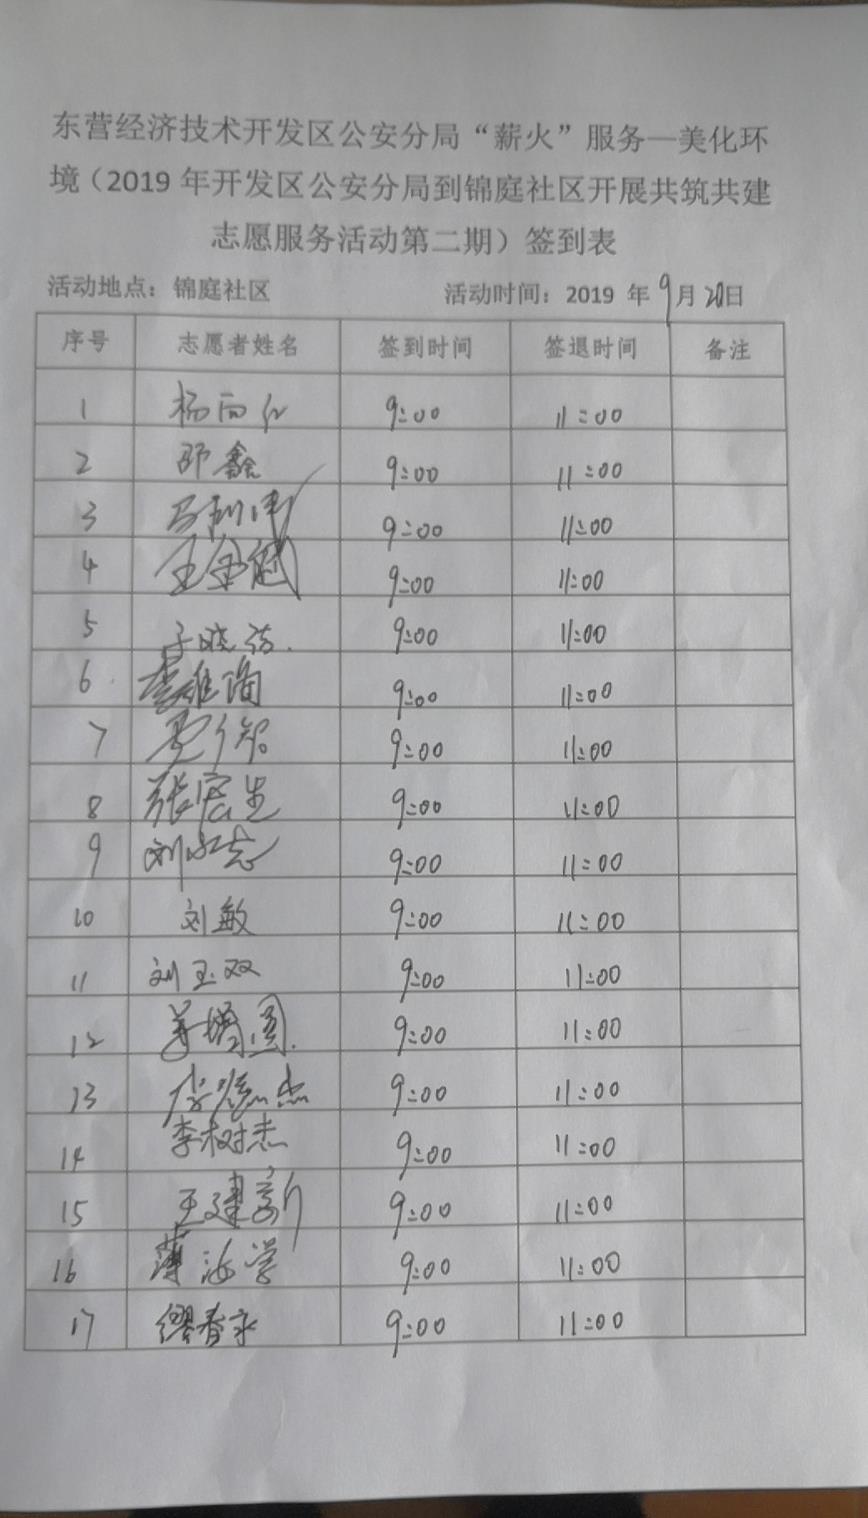 东营经济技术开发区公安分局“薪火”服务—美化环
境（2019 年开发区公安分局到锦庭社区开展共筑共建
志愿服务活动第二期）签到表
活动地点：锦庭社区 活动时间：2019 年 9月 20日
序号 志愿者姓名 签到时间 签退时间 备注
1 9:00 11:00
2 邵鑫 9:00 11:00
3 9:00 11:00
4 9:00 11:00
5 9:00 11:00
6 9:00 11:00
7 9:00 11:00
8 张宏生 9:00 11:00
9 刘永志 9:00 11:00
10 刘敏 9:00 11:00
11 刘玉双 9:00 11:00
12 9:00 11:00
13 9:00 11:00
14 李树杰 9:00 11:00
15 王建新 9:00 11:00
16 薄海学 9:00 11:00
17 缪春永 9:00 11:00